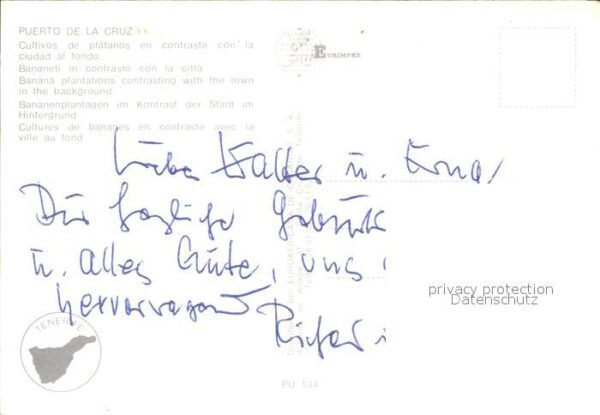 PUERTO DE LA CRUZ
Cultivos de plátanos en contraste con la
ciudad al fondo
Bananeti in contrasto con la città
Banana plantations contrasting with the town
in the background
Bananenplantagen im Kontrast der Stadt an
Hintergrund
Cultures de bananes en contraste avec la
ville au fond
EURIMPEX
Liebe Walter u. Erna,
Die herzliche
u. alles Gute, uns
hervorragend
Richard
privacy protection
Datenschutz
TENERIFE
PU 134